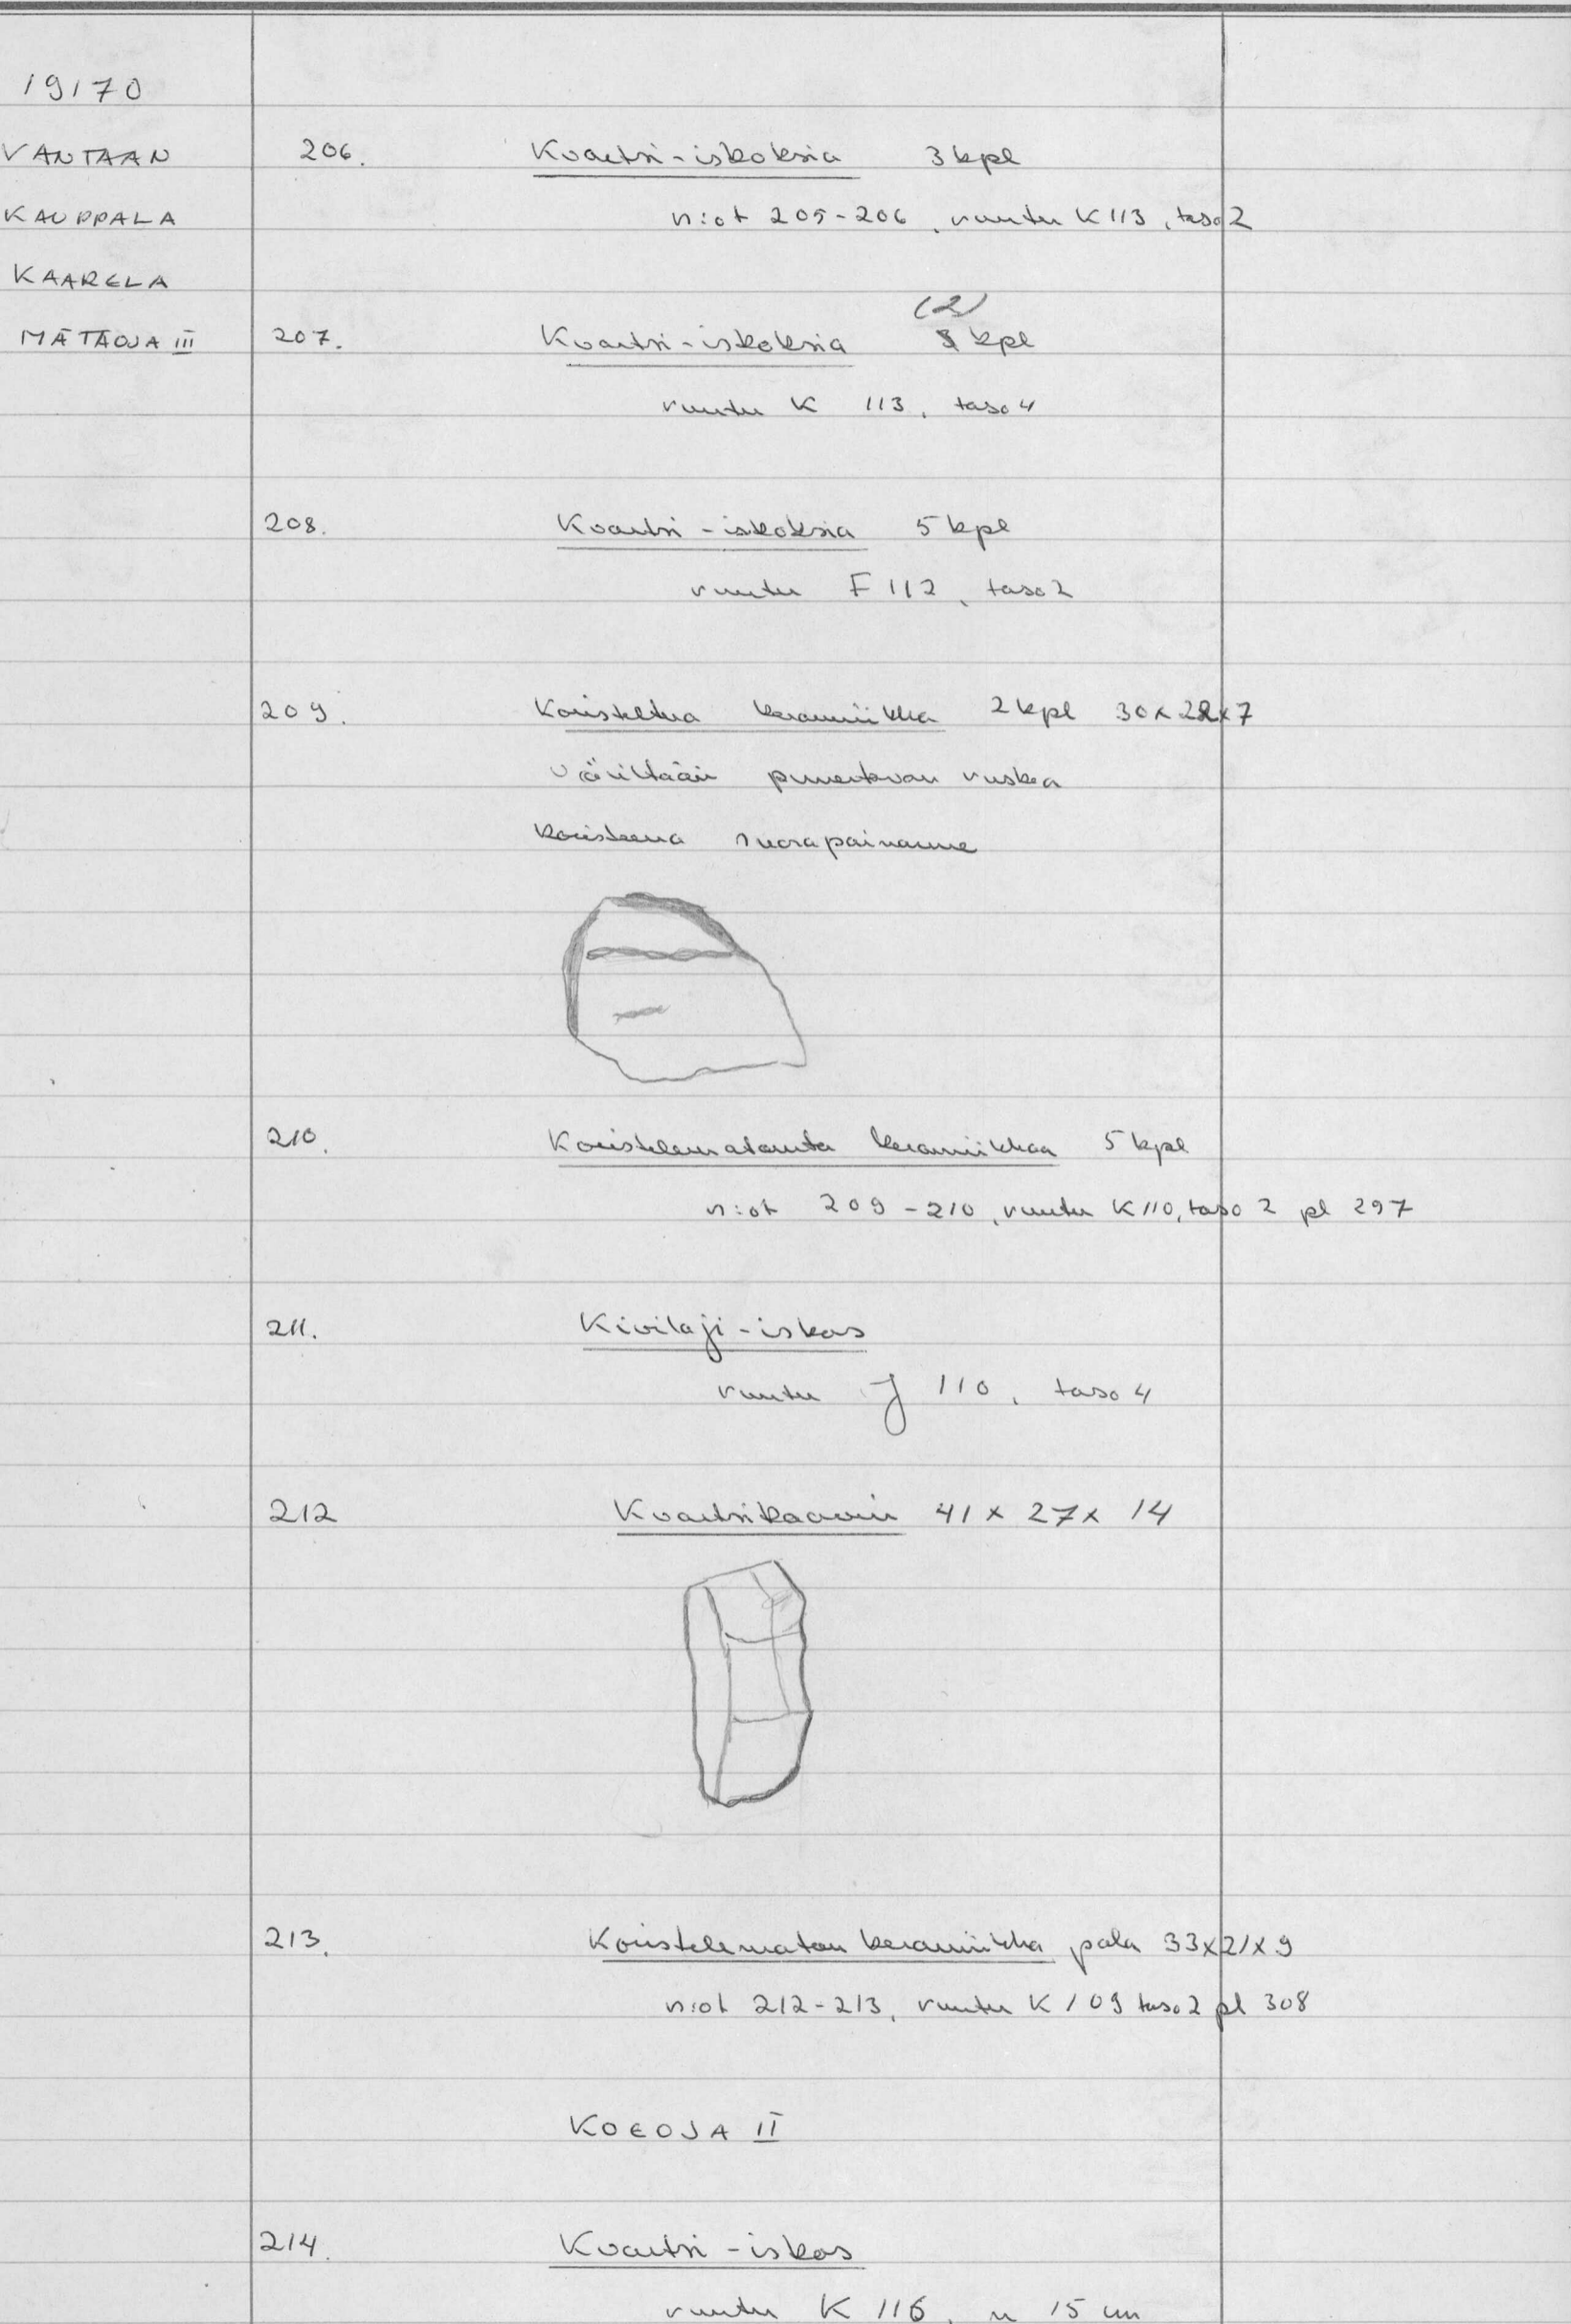 19170
VANTAAN 206. Kvartsi-iskoksia 3 kpl
KAUPPALA n:ot 205-206, ruutu K 113, taso 2
KAARELA
(2)
MÄTÄOJA III 207. Kvartsi-iskoksia kpl
ruutu K 113, taso 4
208. Kvartsi-iskoksia 5 kpl
ruutu F 112, taso 2
209. Koristeltua keramiikka 2 kpl 30x22x7
väriltään punertavan ruskea
koristeena nuorapainanne
210. Koristelematonta keramiikkaa 5 kpl
n:ot 209-210, ruutu K 110, taso 2 pl 297
211. Kivilaji-iskos
ruutu J 110, taso 4
212 Kvartsikaavin 41 x 27 x 14
213. Koristelematon keramiikka pala 33x21x9
n:ot 212-213, ruutu K 109 taso 2 pl 308
KOEOJA II
214. Kvartsi-iskos
ruutu K 116, n 15 cm